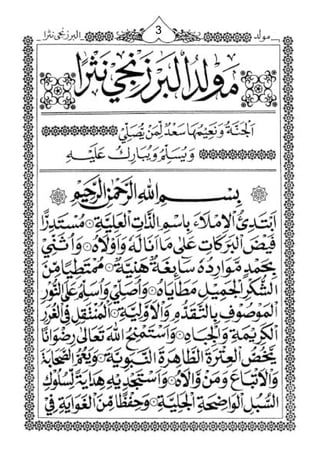 مولد
3
البرزنجي نثرا
مَوْلِدُ الْبَرْزَنْجِيِّ نَثْرًا
اَلْجَنَّةُ وَنَعِيْمُهَا سَعْدٌ لِمَنْ يُصَلِّيْ
وَيُسَلِّمُ وَيُبَارِكُ عَلَيْهِ
بِسْمِ اللهِ الرَّحْمٰنِ الرَّحِيْمِ
اَبْتَدِئُ الْاِمْلَاءَ بِاسْمِ الذَّاتِ الْعَلِيَّةِ ۞ مُسْتَدِرًّا
فَيْضَ الْبَرَكَاتِ عَلٰى مَا اَنَالَهُ وَاَوْلَاهُ ۞ وَاُثَنِّيْ
بِحَمْدٍ مَوَارِدُهُ سَآئِغَةٌ هَنِيَّةٌ ۞ مُمْتَطِيًا مِنَ
الشُّكْرِ الْجَمِيْلِ مَطَايَاهُ ۞ وَاُصَلِّيْ وَاُسَلِّمُ عَلَى النُّوْرِ
الْمَوْصُوْفِ بِالتَّقَدُّمِ وَالْاَوَّلِيَّةِ ۞ الْمُنْتَقِلِ فِى الْغُرَرِ
الْكَرِيْمَةِ وَالْجِبَاهِ ۞ وَاَسْتَمْنِحُ اللهَ تَعَالٰى رِضْوَانًا
يَخُصُّ الْعِتْرَةَ الطَّاهِرَةَ النَّبَوِيَّةَ ۞ وَيَعُمُّ الصَّحَابَةَ
وَالْاَتْبَاعَ وَمَنْ وَّالَاهُ ۞ وَاَسْتَجْدِيْهِ هِدَايَةً لِسُلُوْكِ
السُّبُلِ الْوَاضِحَةِ الْجَلِيَّةِ ۞ وَحِفْظًا مِنَ الْغَوَايَةِ فِيْ